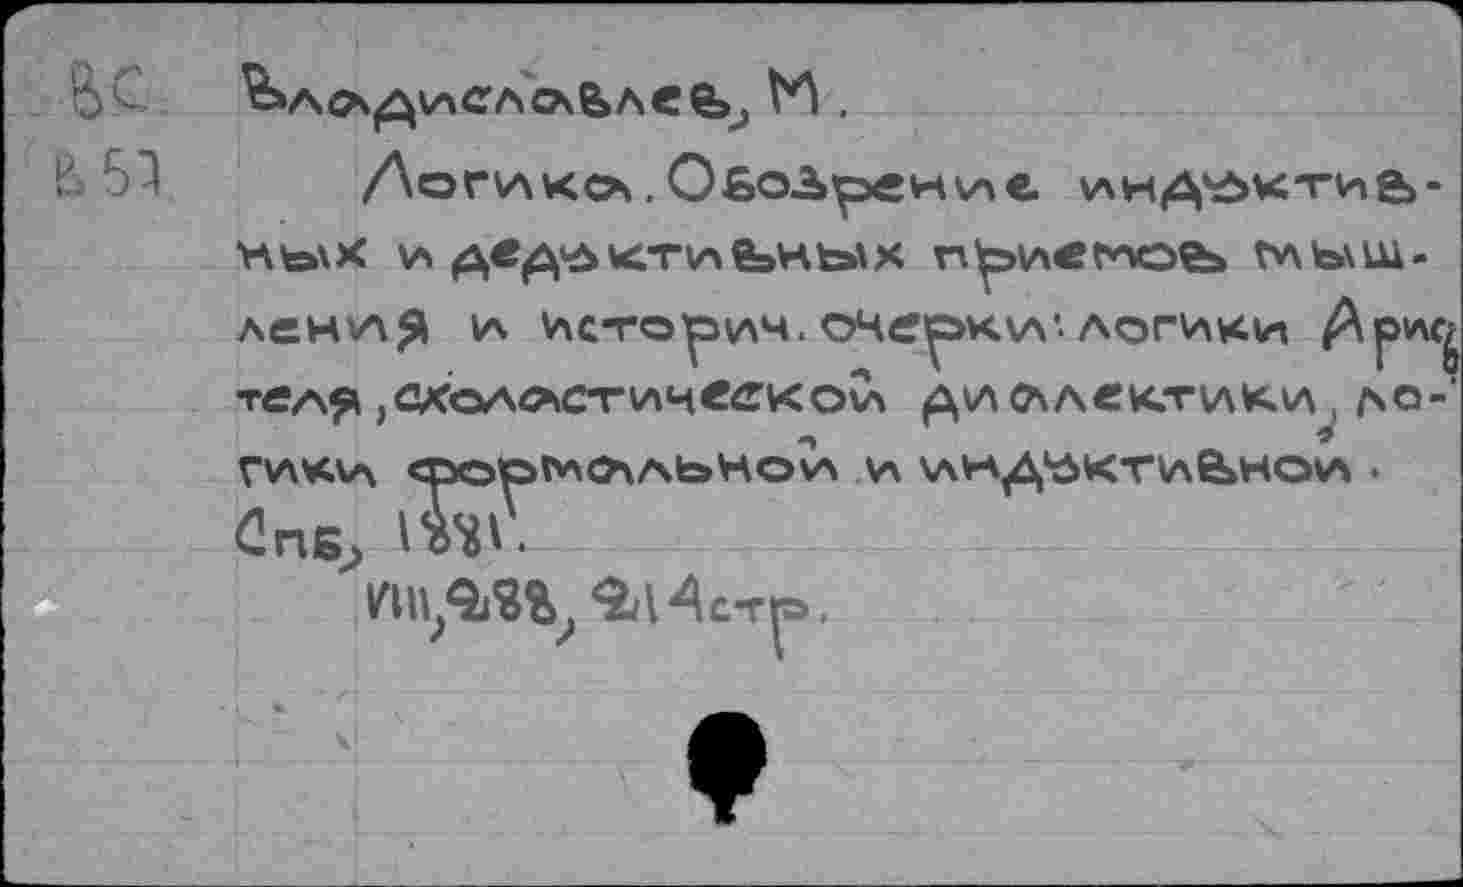 ВС Владиславлев, М.
В57 Логика. Обозрение индуктив-
ных и дедуктивных приемов мыш-
ления и историч. очерки: логики Арис
теля, схоластической диалектики, ло-
гики формальной и индуктивной.
Спб, 1881.